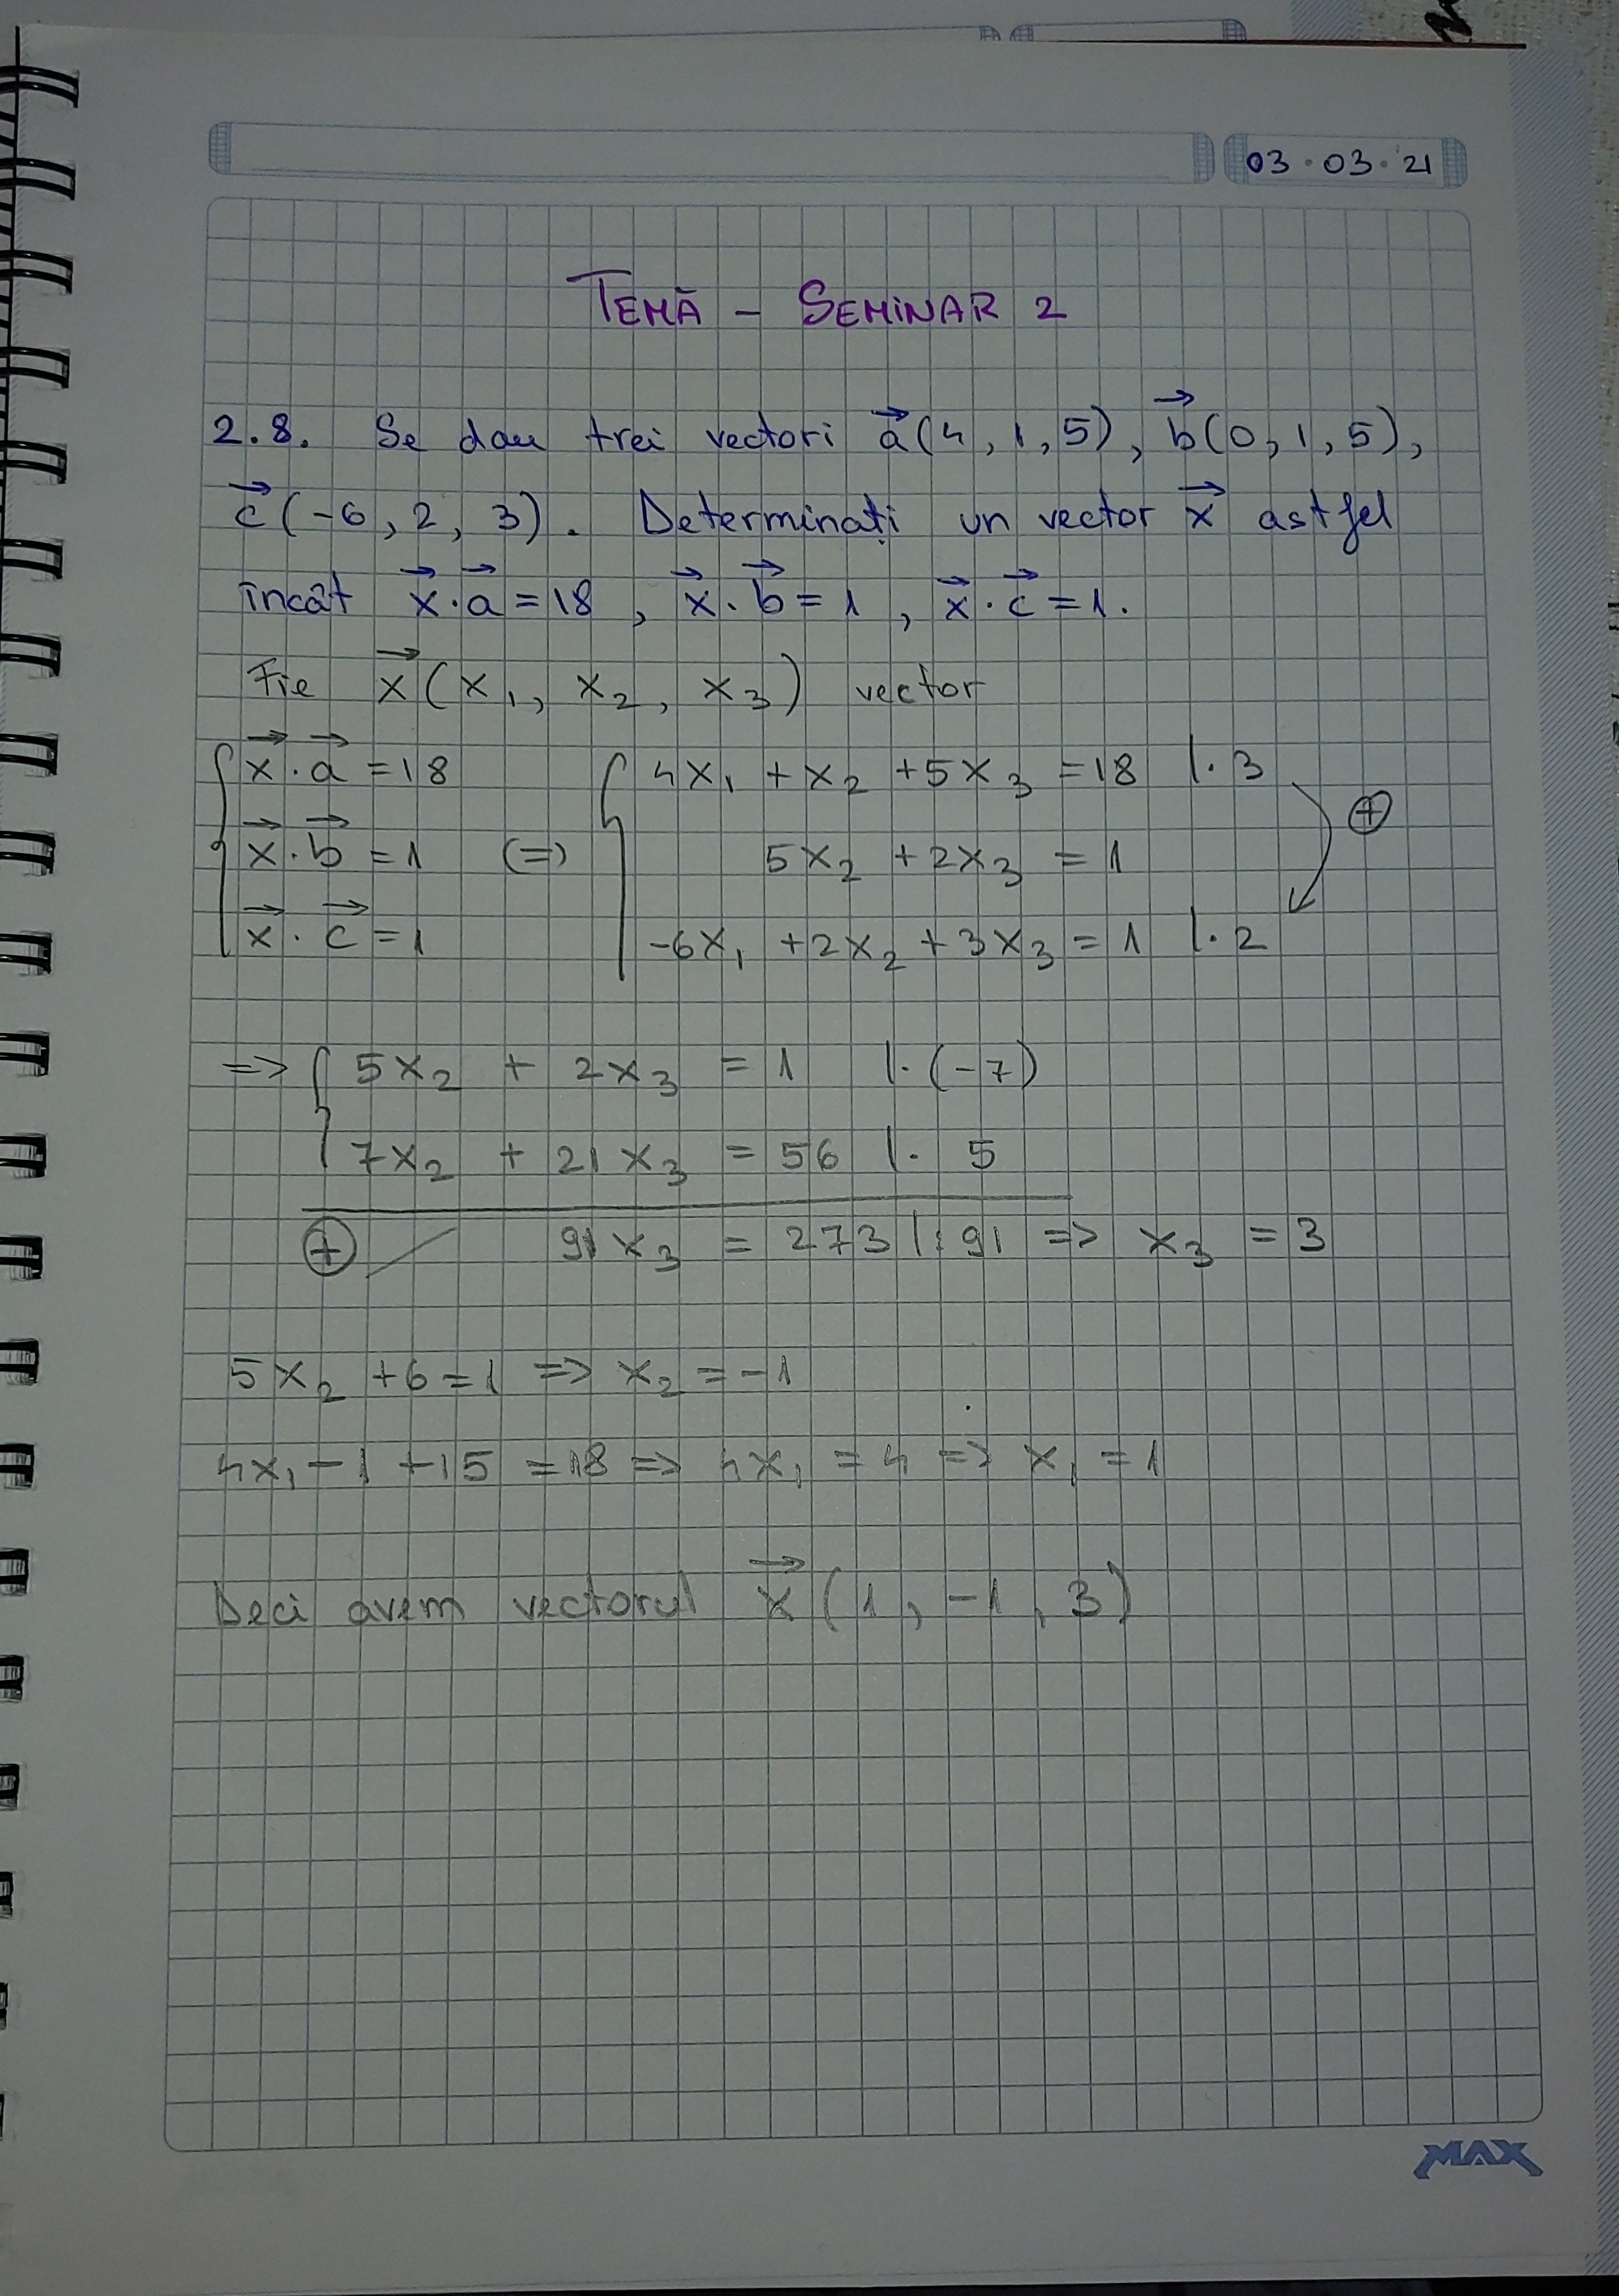 03 · 03 · 21
TEMĂ - SEMINAR 2
2.8. Se dau trei vectori a⃗(4, 1, 5), b⃗(0, 1, 5),
c⃗(-6, 2, 3). Determinați un vector x⃗ astfel
încât x⃗·a⃗ = 18, x⃗·b⃗ = 1, x⃗·c⃗ = 1.
Fie x⃗(x₁, x₂, x₃) vector
{ x⃗·a⃗ = 18 { 4x₁ + x₂ + 5x₃ = 18 |·3
x⃗·b⃗ = 1 (=) 5x₂ + 2x₃ = 1 ⊕
x⃗·c⃗ = 1 -6x₁ + 2x₂ + 3x₃ = 1 |·2
=> { 5x₂ + 2x₃ = 1 |·(-7)
7x₂ + 21x₃ = 56 |· 5
⊕ / 91x₃ = 273 |:91 => x₃ = 3
5x₂ + 6 = 1 => x₂ = -1
4x₁ - 1 + 15 = 18 => 4x₁ = 4 => x₁ = 1
Deci avem vectorul x⃗(1, -1, 3)
MAX